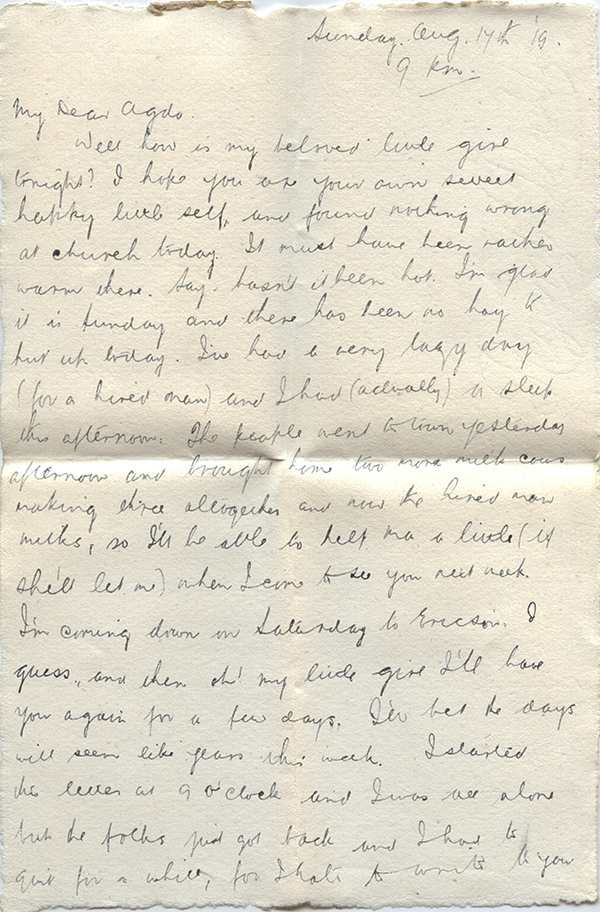 Sunday. Aug. 17th '19.
9 P.M.
My Dear Agda.
Well how is my beloved little girl
tonight? I hope you are your own sweet
happy little self, and found nothing wrong
at church today. It must have been rather
warm there. Say. hasn't it been hot. I'm glad
it is Sunday and there has been no hay to
put up today. I've had a very lazy day
(for a hired man) and I had (actually) a sleep
this afternoon. The people went to town yesterday
afternoon and brought home two more milk cows
making three altogether and now the hired man
milks, so I'll be able to help ma a little (if
she'll let me) when I come to see you next week.
I'm coming down on Saturday to Ericson, I
guess, and then oh! my little girl I'll have
you again for a few days. I'll bet the days
will seem like years this week. I started
this letter at 9 o'clock and I was all alone
but the folks just got back and I had to
quit for a while, for I hate to write to you